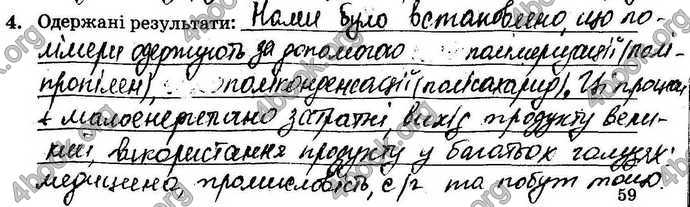 4. Одержані результати: Нами було встановлено, що по-
лімери одержують за допомогою полімеризації (полі-
пропілен), поліконденсації (полісахарид). Ці процеси
є малоенергетично затратні, вихід продукту вели-
кий, використання продукту у багатьох галузях:
медицина, промисловість, с/г та побут тощо.
59